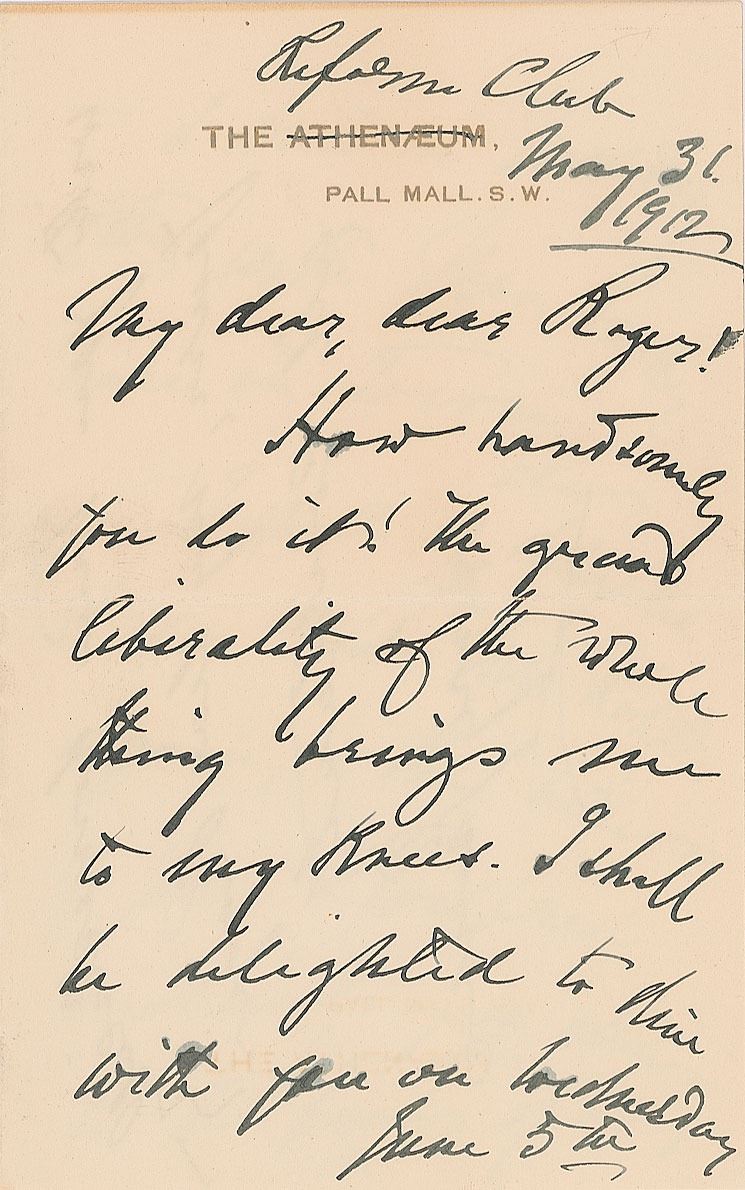 Reform Club
THE ATHENÆUM,
May 31.
PALL MALL. S. W.
1912
My dear, dear Roger!
How handsomely
you do it! The grand
liberality of the whole
thing brings me
to my knees. I shall
be delighted to dine
with you on Wednesday
June 5th